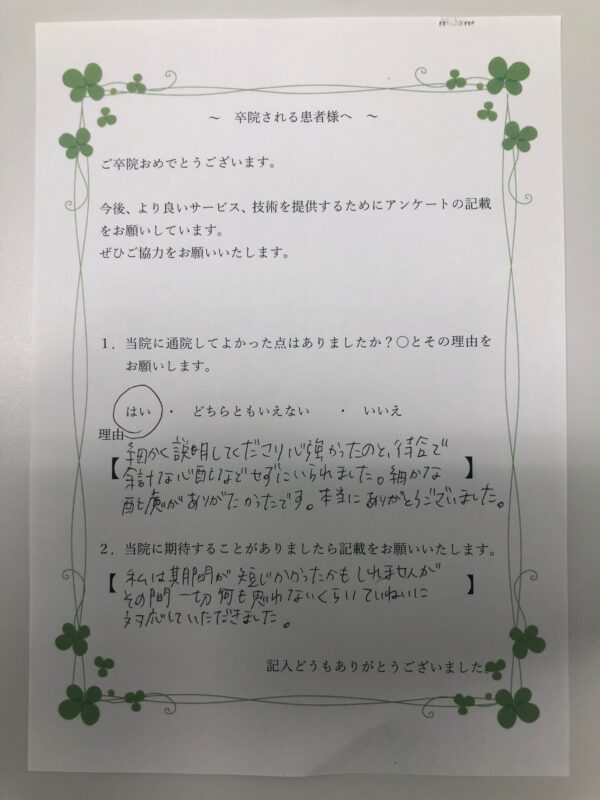 ～ 卒院される患者様へ ～
ご卒院おめでとうございます。
今後、より良いサービス、技術を提供するためにアンケートの記載
をお願いしています。
ぜひご協力をお願いいたします。
1．当院に通院してよかった点はありましたか？〇とその理由を
お願いします。
はい ・ どちらともいえない ・ いいえ
理由
【細かく説明してくださり心強かったのと、待合で
余計な心配などせずにいられました。細かな
配慮がありがたかったです。本当にありがとうございました。】
2．当院に期待することがありましたら記載をお願いいたします。
【私は期間が短じかかったかもしれませんが
その間一切何も思わないくらいていねいに
対応していただきました。】
記入どうもありがとうございました。